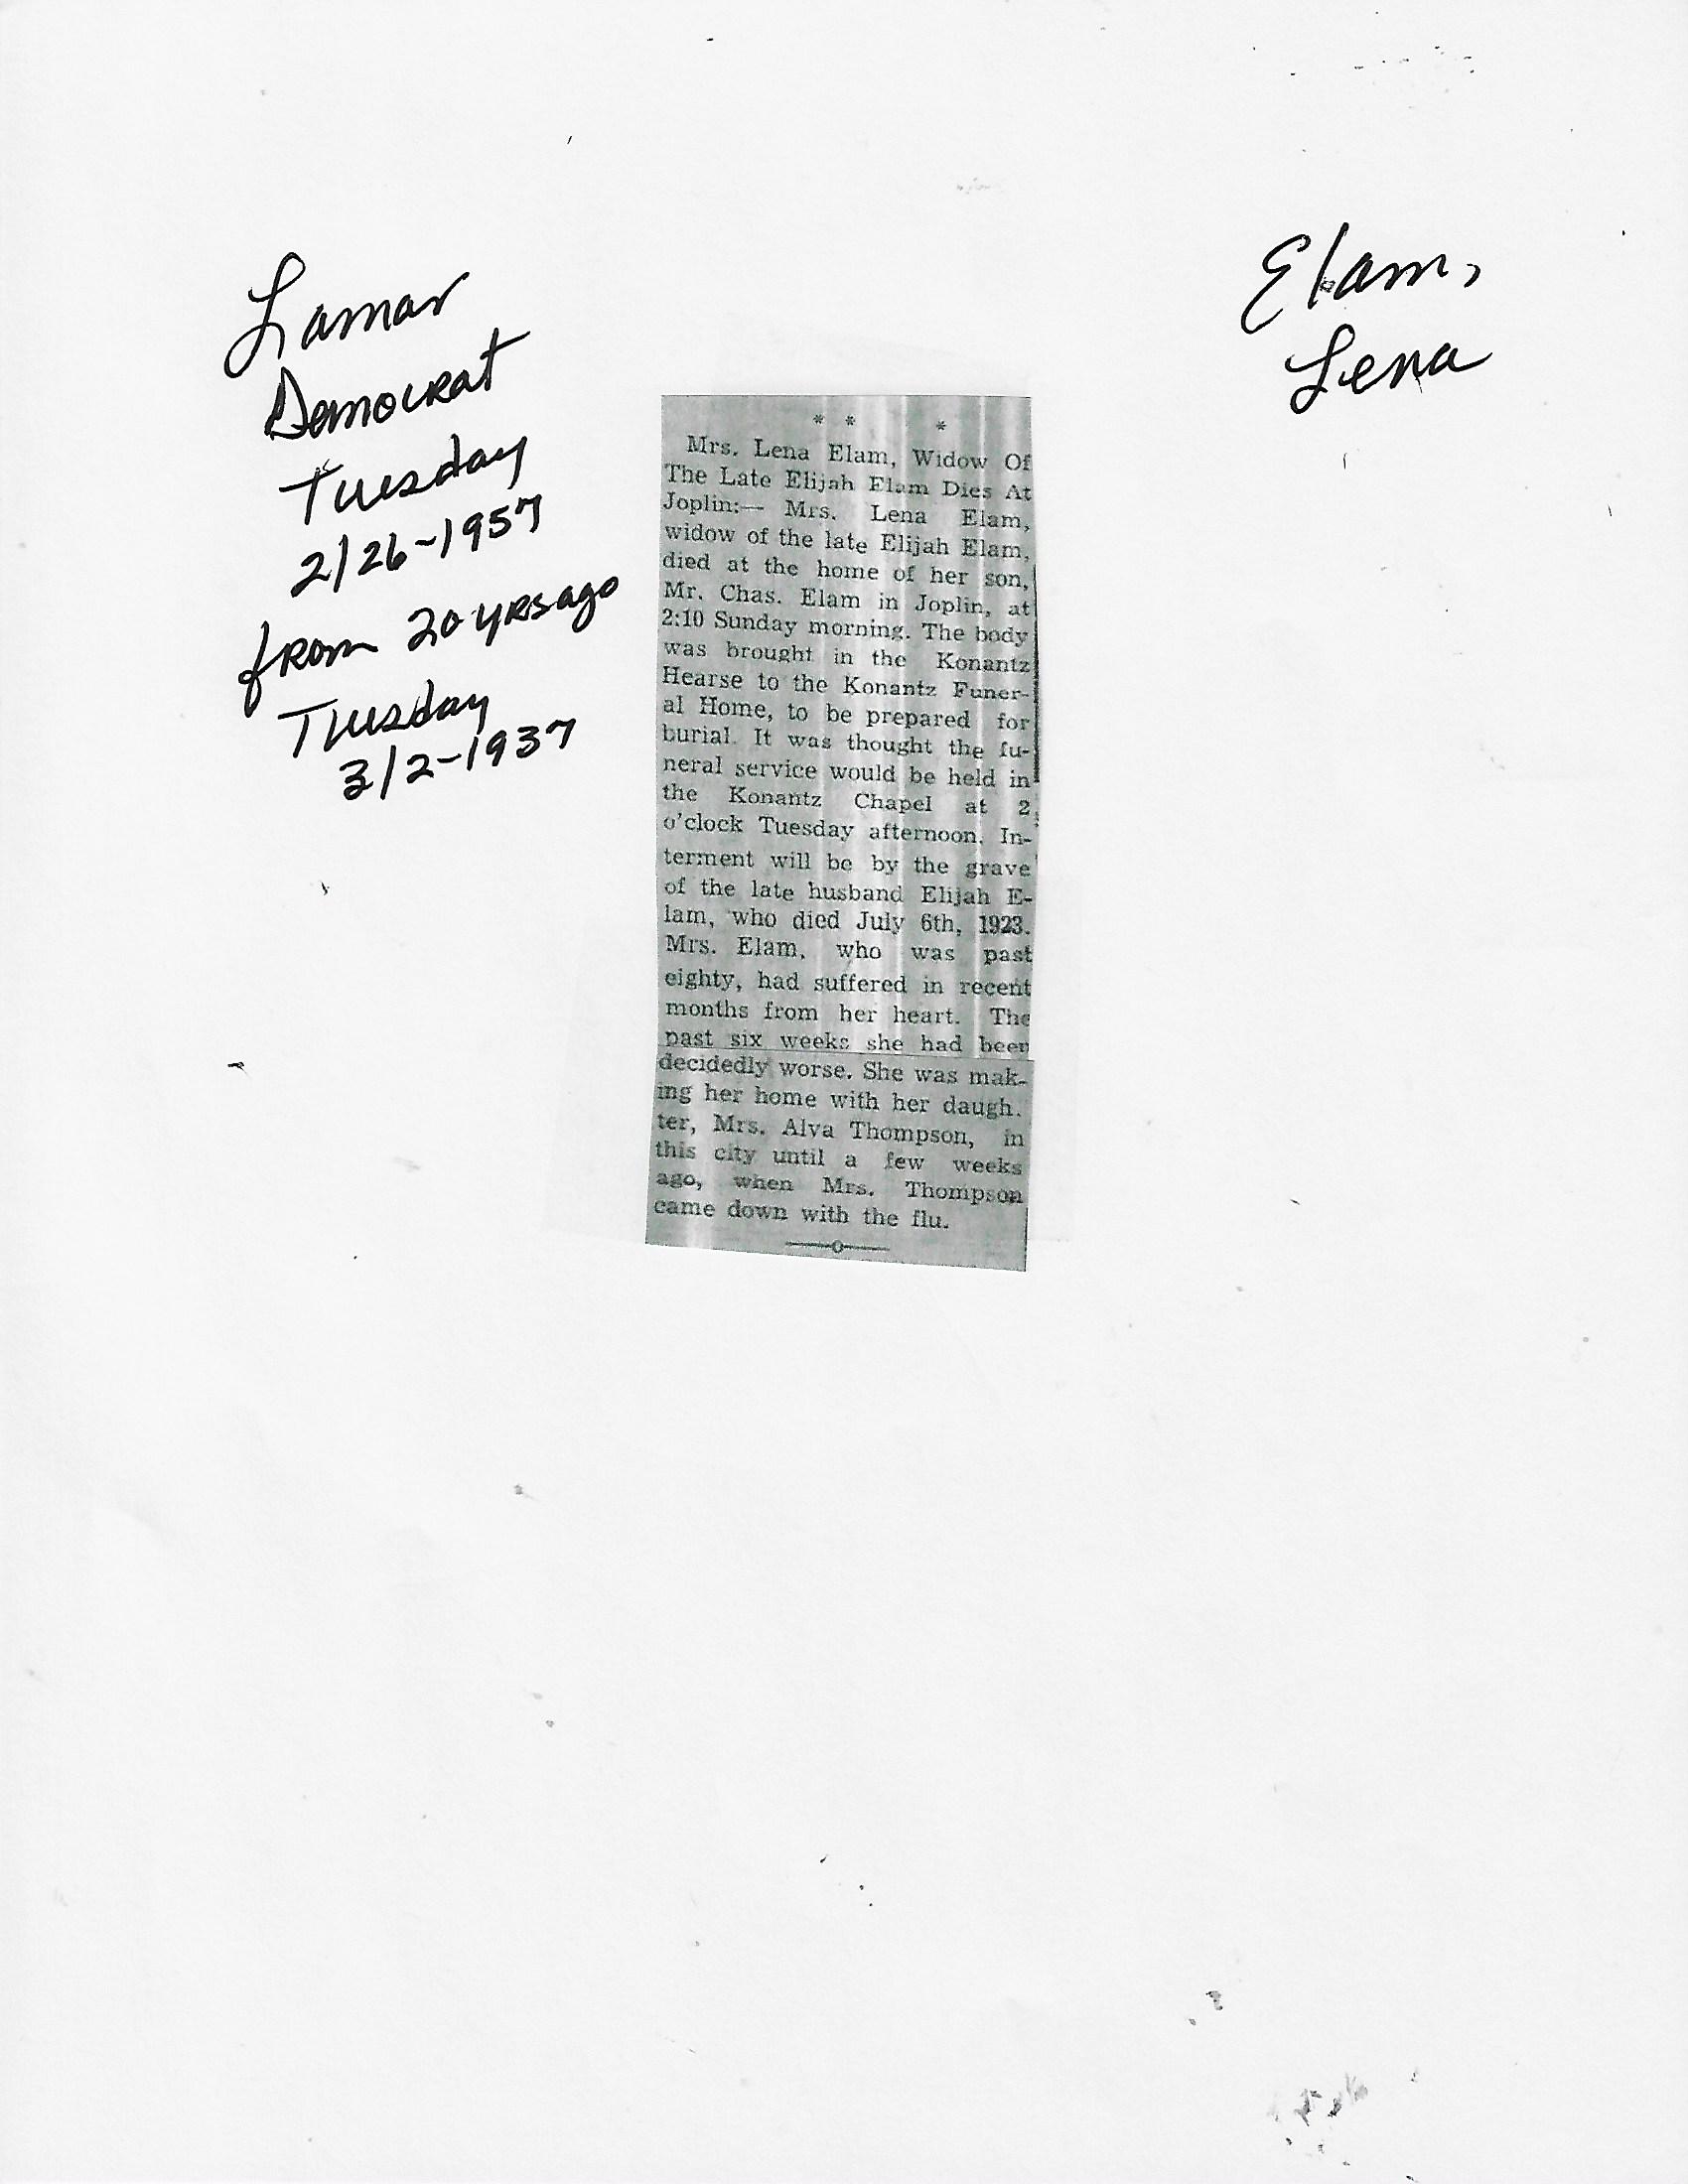 Lamar
Democrat
Tuesday
2/26-1957
from 20 yrs ago
Tuesday
3/2-1937
Elam,
Lena
* * *
Mrs. Lena Elam, Widow Of
The Late Elijah Elam Dies At
Joplin:— Mrs. Lena Elam,
widow of the late Elijah Elam,
died at the home of her son,
Mr. Chas. Elam in Joplin, at
2:10 Sunday morning. The body
was brought in the Konantz
Hearse to the Konantz Funer-
al Home, to be prepared for
burial. It was thought the fu-
neral service would be held in
the Konantz Chapel at 2
o'clock Tuesday afternoon. In-
terment will be by the grave
of the late husband Elijah E-
lam, who died July 6th, 1923.
Mrs. Elam, who was past
eighty, had suffered in recent
months from her heart. The
past six weeks she had been
decidedly worse. She was mak-
ing her home with her daugh.
ter, Mrs. Alva Thompson, in
this city until a few weeks
ago, when Mrs. Thompson
came down with the flu.
—o—